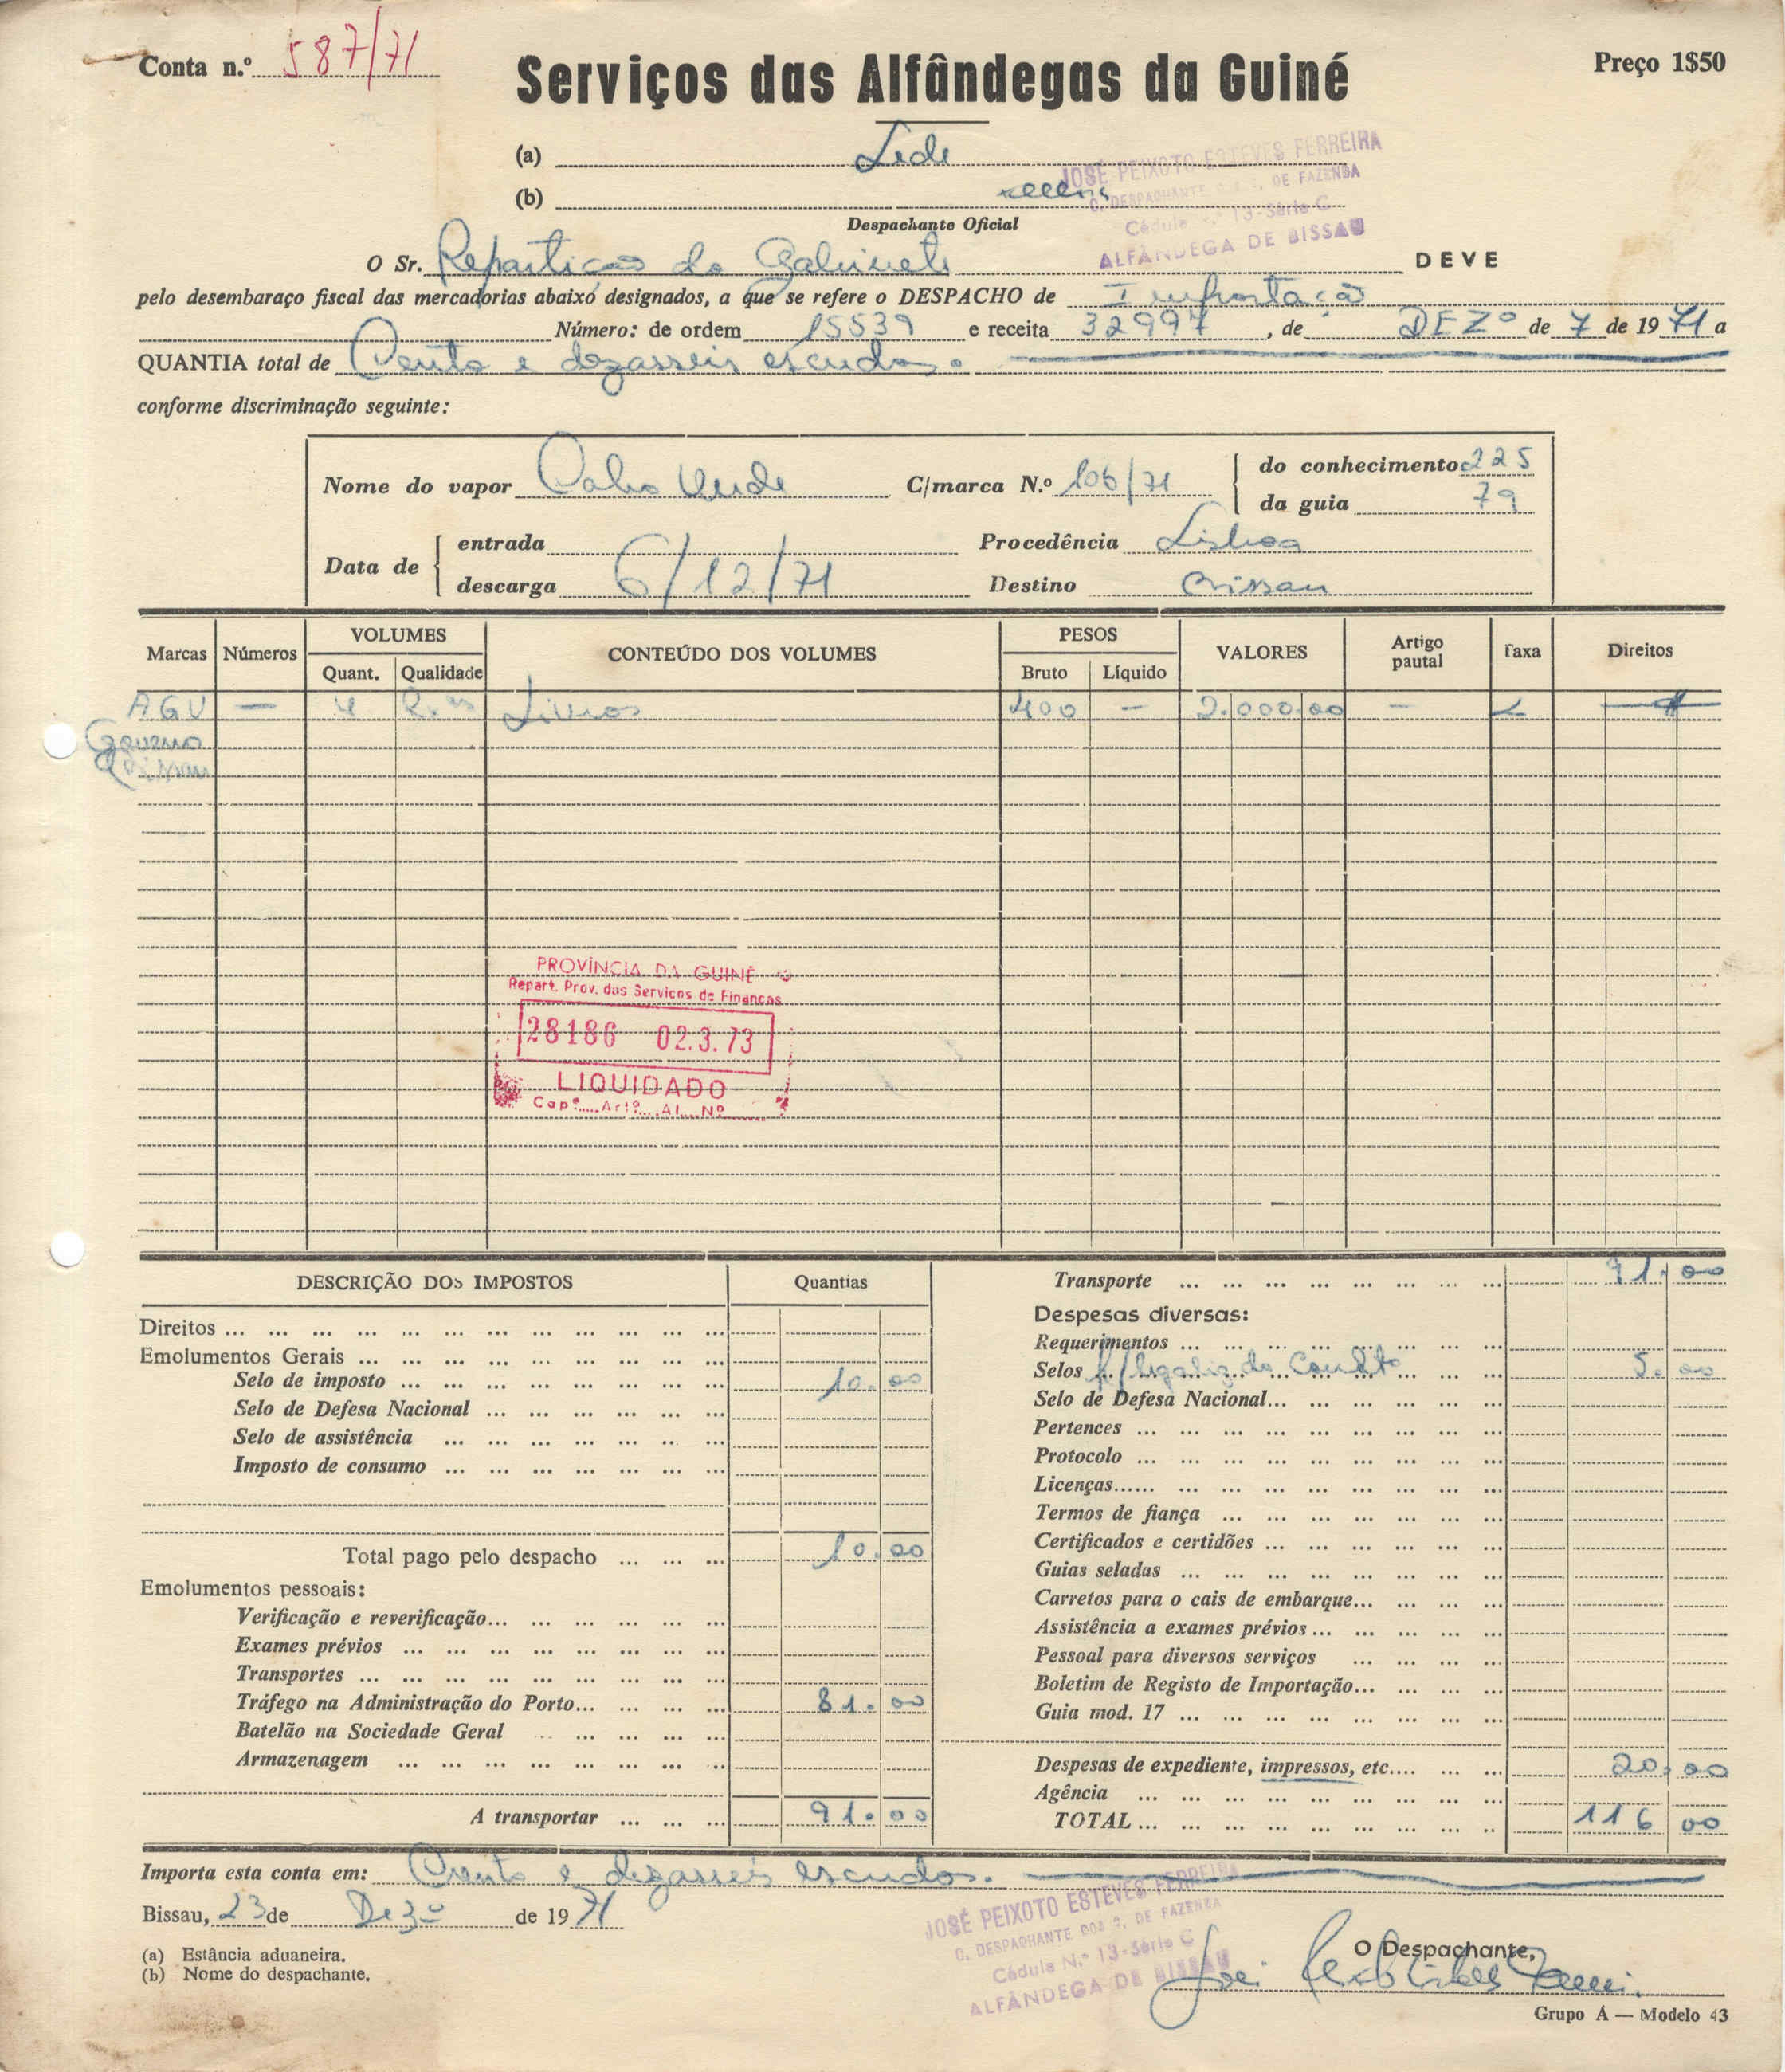 Conta n.º 587/71
Serviços das Alfândegas da Guiné
Preço 1$50
(a) Sede
(b)
Despachante Oficial
JOSÉ PEIXOTO ESTEVES FERREIRA
O. DESPACHANTE DOS S. DE FAZENDA
Cédula N.º 13-Série C
ALFÂNDEGA DE BISSAU
O Sr. Repartição do Gabinete DEVE
pelo desembaraço fiscal das mercadorias abaixo designados, a que se refere o DESPACHO de Importação
Número: de ordem 15539 e receita 32997, de DEZº de 7 de 1971 a
QUANTIA total de Cento e dezasseis escudos.
conforme discriminação seguinte:
Nome do vapor Cabo Verde C/marca N.º 106/71 do conhecimento 225
da guia 79
Data de entrada Procedência Lisboa
descarga 6/12/71 Destino Bissau
Marcas Números VOLUMES CONTEÚDO DOS VOLUMES PESOS VALORES Artigo pautal Taxa Direitos
Quant. Qualidade Bruto Líquido
AGU — 4 Livros 400 — 2.000,00 —
Governo
Bissau
PROVÍNCIA DA GUINÉ
Repart. Prov. dos Serviços de Finanças
28186 02.3.73
LIQUIDADO
Capº.....Artº....Al....Nº......
DESCRIÇÃO DOS IMPOSTOS Quantias
Direitos ...
Emolumentos Gerais ...
Selo de imposto ... 10.00
Selo de Defesa Nacional ...
Selo de assistência ...
Imposto de consumo ...
Total pago pelo despacho ... 10.00
Emolumentos pessoais:
Verificação e reverificação...
Exames prévios ...
Transportes ...
Tráfego na Administração do Porto... 81.00
Batelão na Sociedade Geral ...
Armazenagem ...
A transportar ... 91.00
Transporte ... 91.00
Despesas diversas:
Requerimentos ...
Selos p/legaliz. do Conhto 5.00
Selo de Defesa Nacional...
Pertences ...
Protocolo ...
Licenças......
Termos de fiança ...
Certificados e certidões ...
Guias seladas ...
Carretos para o cais de embarque...
Assistência a exames prévios...
Pessoal para diversos serviços ...
Boletim de Registo de Importação...
Guia mod. 17 ...
Despesas de expediente, impressos, etc.... 20.00
Agência ...
TOTAL... 116 00
Importa esta conta em: Cento e dezasseis escudos.
Bissau, 23 de Dezº de 1971
JOSÉ PEIXOTO ESTEVES FERREIRA
O. DESPACHANTE DOS S. DE FAZENDA
Cédula N.º 13-Série C
ALFÂNDEGA DE BISSAU
O Despachante,
(a) Estância aduaneira.
(b) Nome do despachante.
Grupo A — Modelo 43